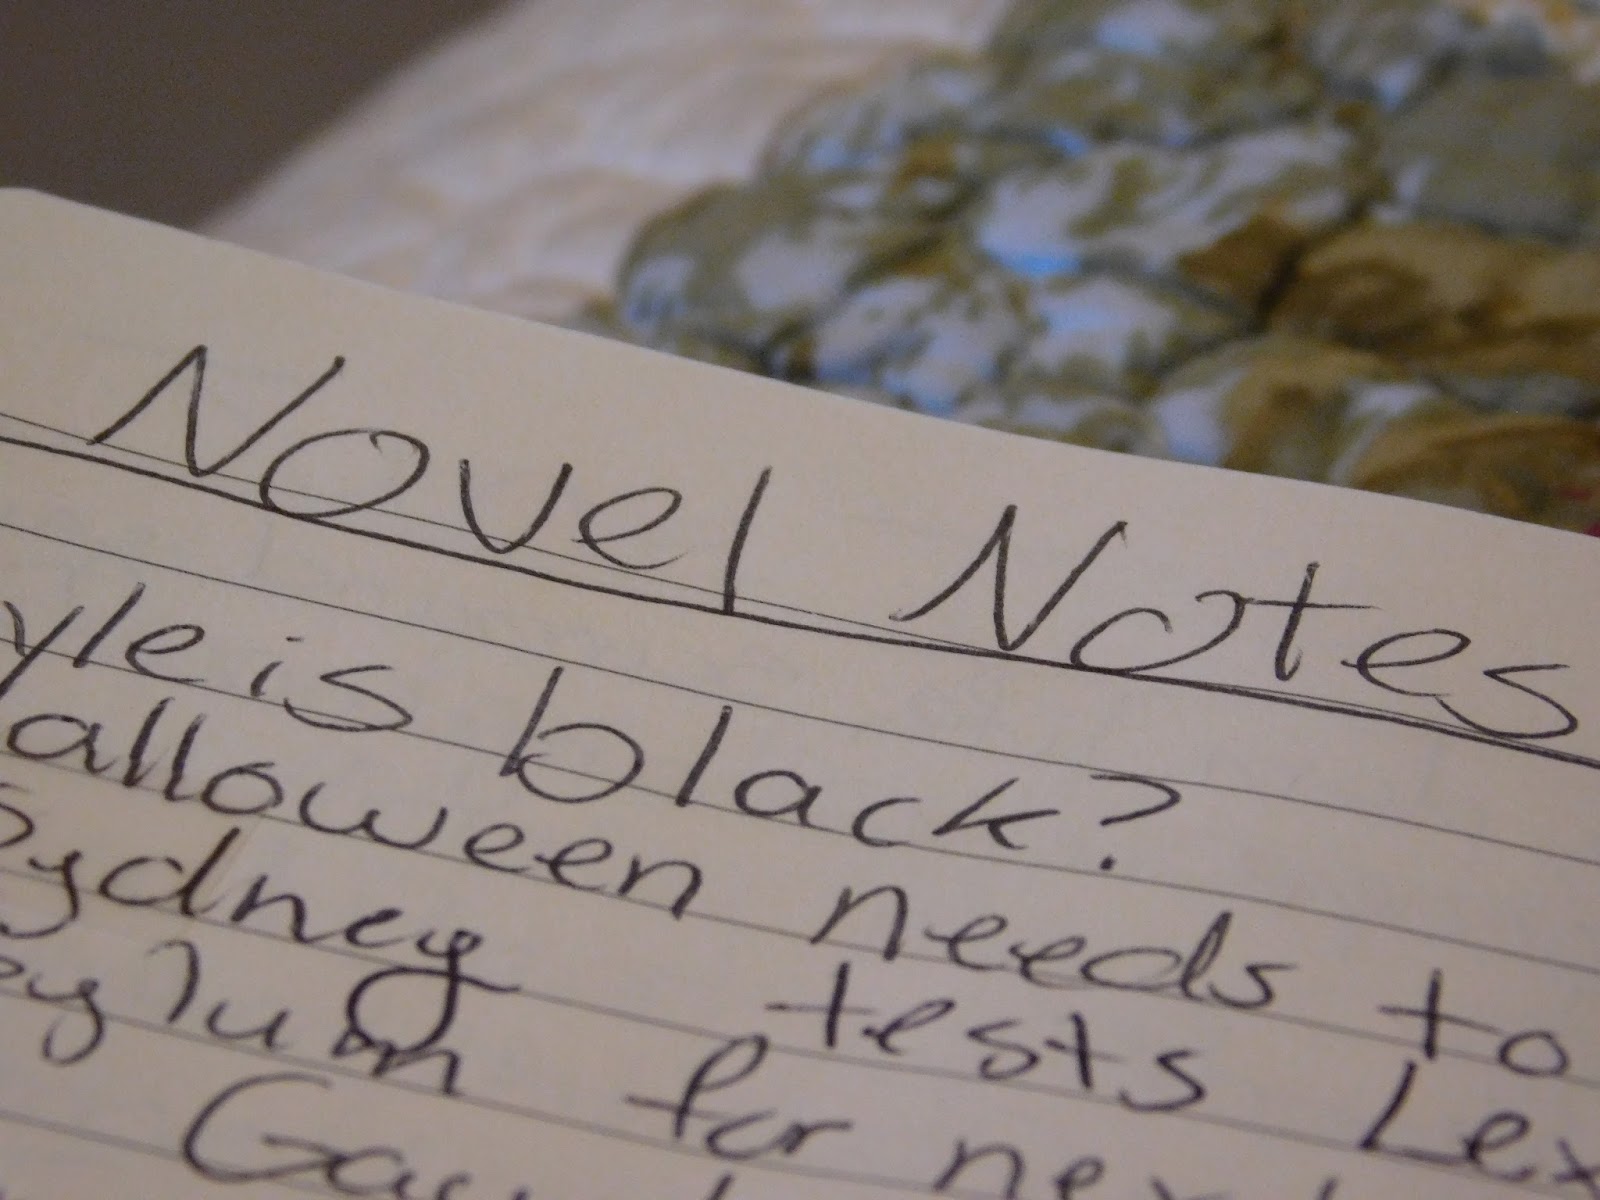 Novel Notes
yle is black?
alloween needs to
Sydney tests Lex
for next